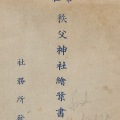 秩父神社繪葉書
社務所發